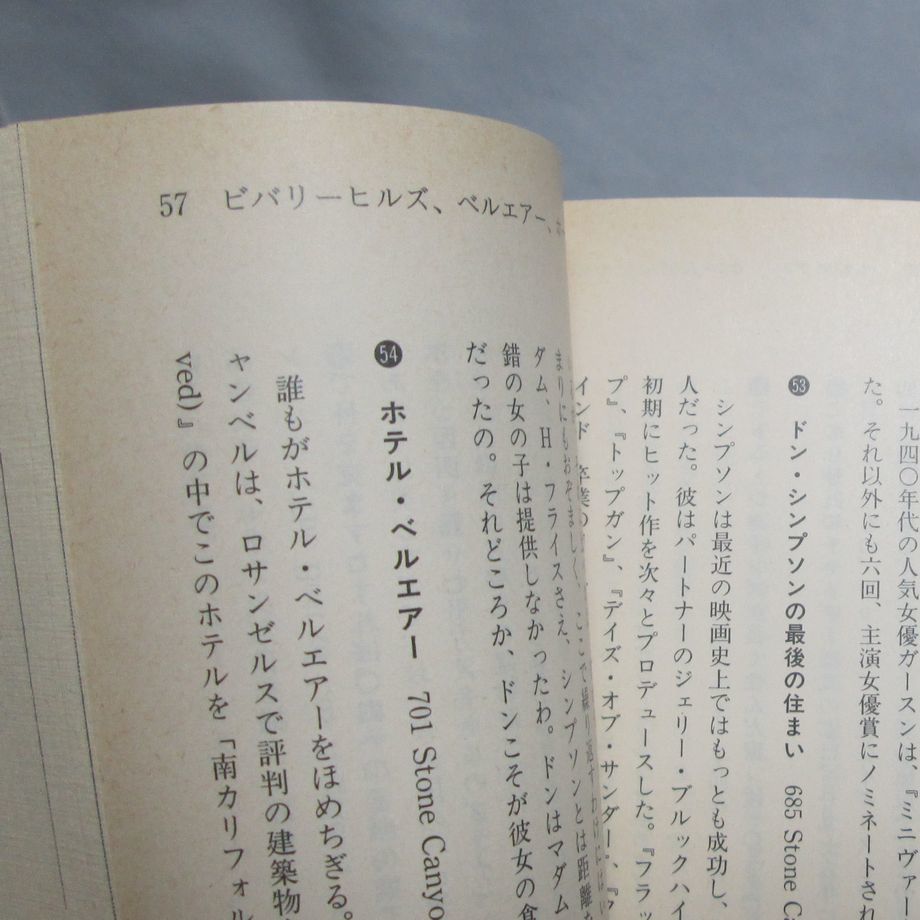 一九四〇年代の人気女優ガースンは、『ミニヴァー
た。それ以外にも六回、主演女優賞にノミネートされ
53 ドン・シンプソンの最後の住まい 685 Stone C
シンプソンは最近の映画史上ではもっとも成功し、
人だった。彼はパートナーのジェリー・ブルックハイ
初期にヒット作を次々とプロデュースした。『フラッ
プ』、『トップガン』、『デイズ・オブ・サンダー』、『
57 ビバリーヒルズ、ベルエアー、
ダム、H・フライスさえ、シンプソンとは距離
錯の女の子は提供しなかったわ。ドンはマダム
だったの。それどころか、ドンこそが彼女の食
54 ホテル・ベルエアー 701 Stone Canyo
誰もがホテル・ベルエアーをほめちぎる。
ャンベルは、ロサンゼルスで評判の建築物
ved)』の中でこのホテルを「南カリフォル